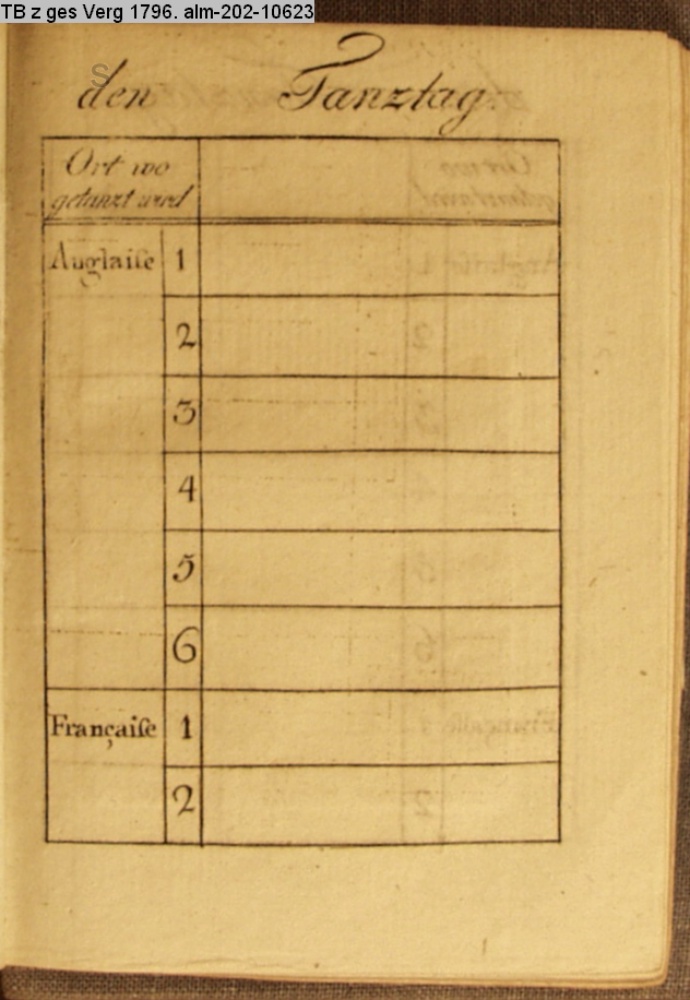 TB z ges Verg 1796. alm-202-10623
den Tanztag.
Ort wo
getanzt wird
Anglaiſe 1
2
3
4
5
6
Françaiſe 1
2